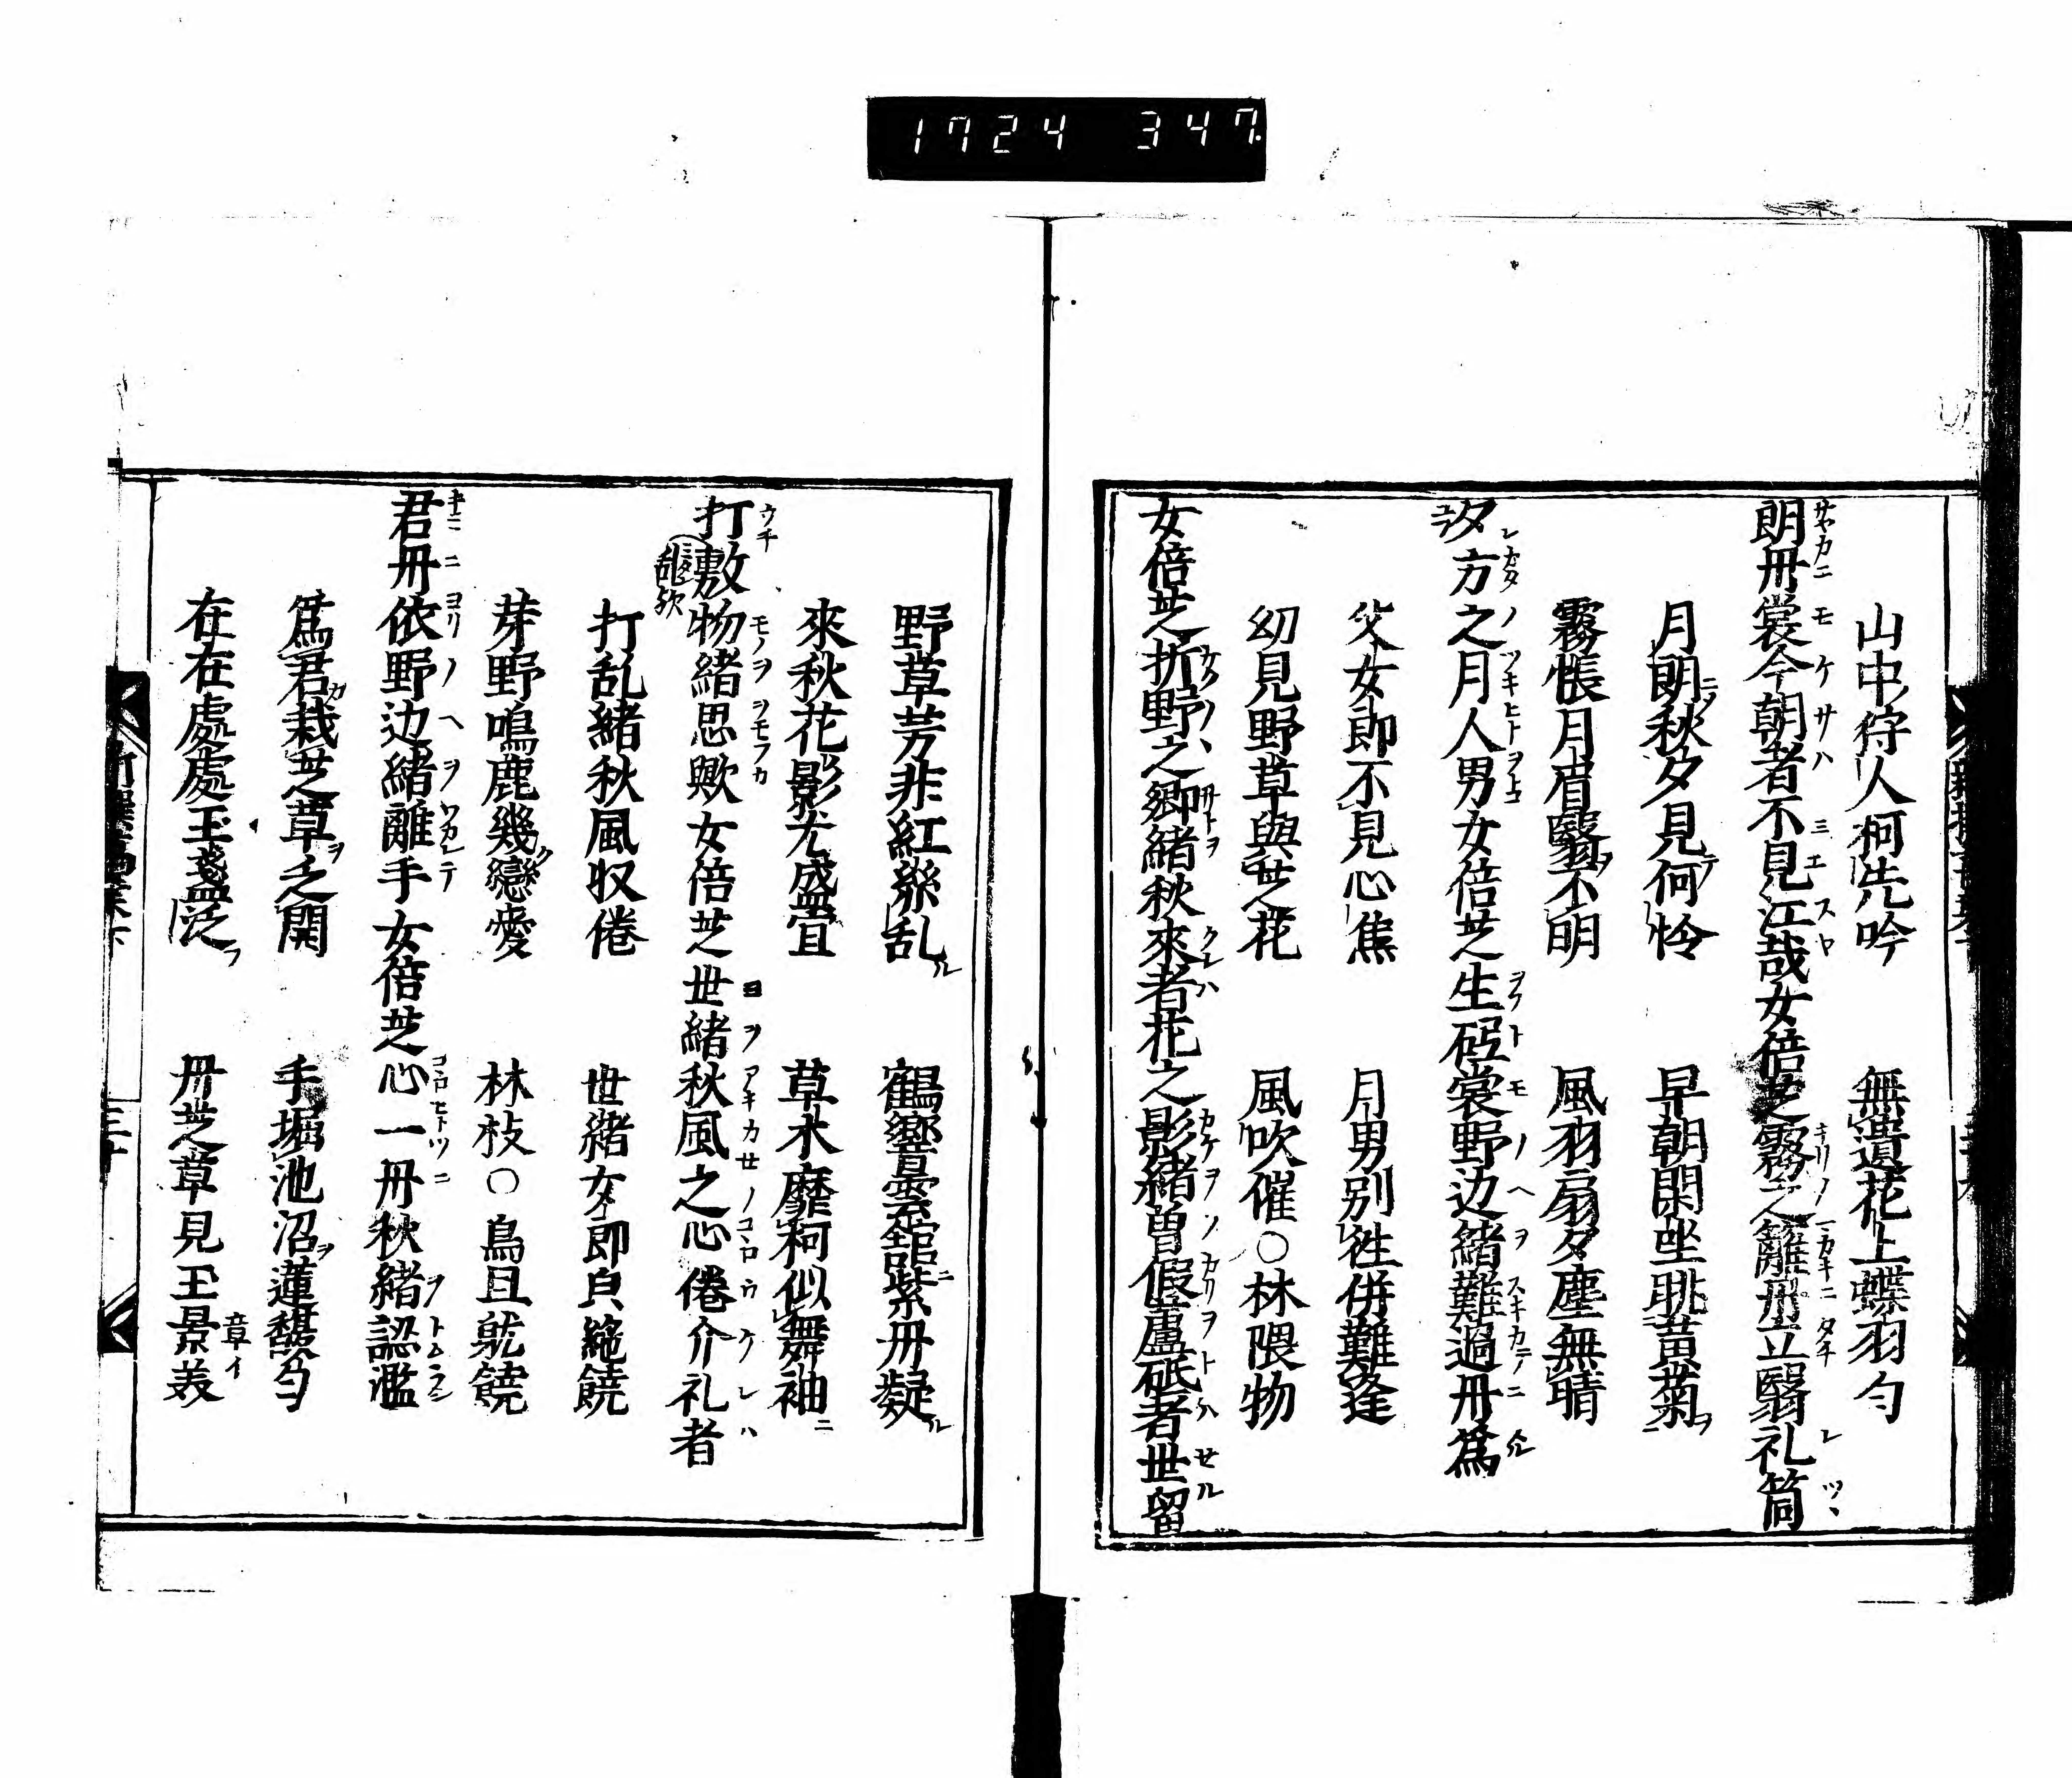 1724 347
山中狩人柯先吟　無遺花上蝶羽匀
朗丹裳今朝者不見江哉女倍芝霧之籬丹立翳礼筒
月朗秋夕見何怜　早朝閑坐眺黄菊
霧帳月眉翳不明　風羽扇夕塵無晴
夕方之月人男女倍芝生砢裳野辺緒難過丹為
父女即不見心焦　月男別徃併難逢
幼見野草與芝花　風吹催〇林隈物
女倍芝折野之郷緒秋來者花之影緒曽假蘆砥者世留
野草芳非紅緜乱　鶴響雲舘紫丹凝
來秋花影尤盛宜　草木靡柯似舞袖
打敷物緒思歟女倍芝世緒秋風之心倦介礼者
打乱緒秋風収倦　世緒女即自絶饒
芽野鳴鹿幾戀愛　林枝〇鳥且就饒
君丹依野辺緒離手女倍芝心一丹秋緒認濫
為君栽芝草之開　手堀池沼蓮馥匀
在在處處玉盞泛　丹芝草見王景美
章イ